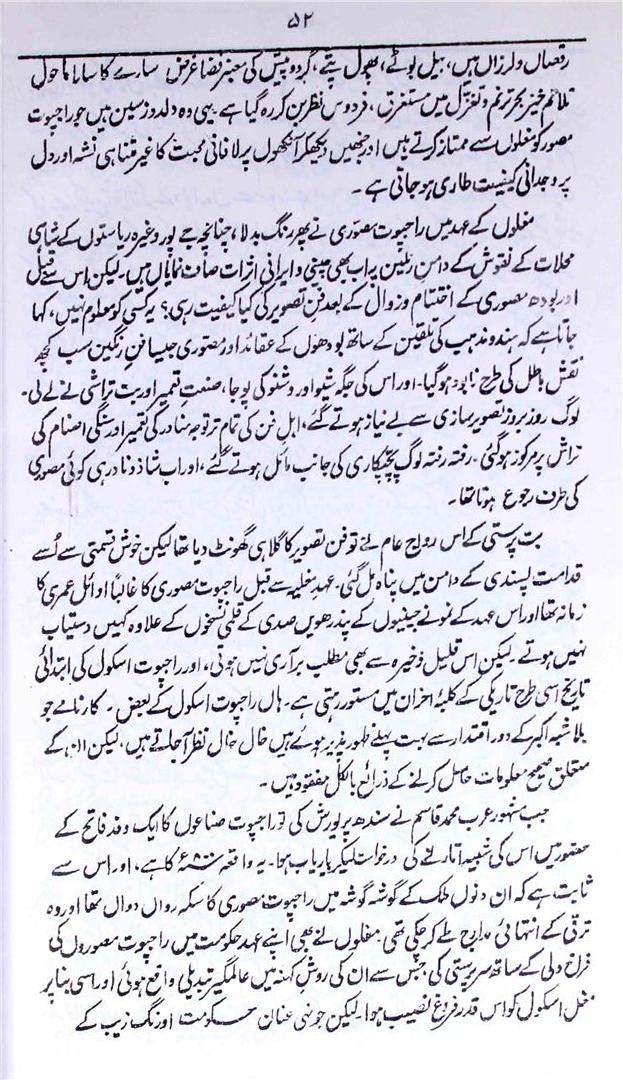 ۵۲
رقصاں و لرزاں ہیں، بیل بوٹے، پھول پتے، گرد و پیش کی معنبر فضا غرض سارے کا سارا ماحول
تلاطم خیز بحرِ ترنم و تغزل میں مستغرق، فردوس نظر بن کر رہ گیا ہے یہی وہ دلدوز سین ہیں جو راجپوت
مصور کو مغلوں سے ممتاز کرتے ہیں اور جنھیں دیکھکر آنکھوں پر لافانی محبت کا غیر متناہی نشہ اور دل
پر وجدانی کیفیت طاری ہو جاتی ہے ۔
مغلوں کے عہد میں راجپوت مصوری نے پھر رنگ بدلا، چنانچہ جے پور وغیرہ ریاستوں کے شاہی
محلات کے نقوش کے دامنِ رنگین پر اب بھی چینی و ایرانی اثرات صاف نمایاں ہیں۔ لیکن اس سے قبل
اور بودھ مصوری کے اختتام و زوال کے بعد فنِ تصویر کی کیا کیفیت رہی؟ یہ کسی کو معلوم نہیں، کہا
جاتا ہے کہ ہندو مذہب کی تلقین کے ساتھ بودھوں کے عقائد اور مصوری جیسا فنِ رنگین سب کچھ
نقش باطل کی طرح نابود ہو گیا۔ اور اس کی جگہ شیو اور وشنو کی پوجا، صنعتِ تعمیر اور بت تراشی نے لے لی۔
لوگ روز بروز تصویر سازی سے بے نیاز ہوتے گئے، اہلِ فن کی تمام تر توجہ منادر کی تعمیر اور سنگی اصنام کی
تراش پر مرکوز ہو گئی۔ رفتہ رفتہ لوگ پچیکاری کی جانب مائل ہوتے گئے، اور اب شاذ و نادر ہی کوئی مصوری
کی طرف رجوع ہوتا تھا۔
بت پرستی کے اس رواجِ عام نے تو فن تصویر کا گلا ہی گھونٹ دیا تھا لیکن خوش قسمتی سے اُسے
قدامت پسندی کے دامن میں پناہ مل گئی۔ عہد مغلیہ سے قبل راجپوت مصوری کا غالباً اوائل عمری کا
زمانہ تھا اور اس عہد کے نمونے جینیوں کے پندرھویں صدی کے قلمی نسخوں کے علاوہ کہیں دستیاب
نہیں ہوتے۔ لیکن اس قلیل ذخیرہ سے بھی مطلب برآری نہیں ہوتی، اور راجپوت اسکول کی ابتدائی
تاریخ اسی طرح تاریکی کے کلبۂ احزان میں مستور رہتی ہے۔ ہاں راجپوت اسکول کے بعض ۔ کارنامے جو
بلا شبہ اکبر کے دور اقتدار سے بہت پہلے ظہور پذیر ہوئے ہیں خال خال نظر آ جاتے ہیں، لیکن ان کے
متعلق صحیح معلومات حاصل کرنے کے ذرائع بالکل مفقود ہیں ۔
جب مشہور عرب محمد قاسم نے سندھ پر یورش کی تو راجپوت صناعوں کا ایک وفد فاتح کے
حضور میں اس کی شبیہ اتارنے کی درخواست لیکر باریاب ہوا۔ یہ واقعہ کا ہے، اور اس سے
ثابت ہے کہ ان دنوں ملک کے گوشہ گوشہ میں راجپوت مصوری کا سکہ رواں دواں تھا اور وہ
ترقی کے انتہائی مدارج طے کر چکی تھی۔ مغلوں نے بھی اپنے عہد حکومت میں راجپوت مصوروں کی
فراخ دلی کے ساتھ سرپرستی کی جس سے ان کی روش کہنہ میں عالمگیر تبدیلی واقع ہوئی اور اسی بنا پر
مغل اسکول کو اس قدر فروغ نصیب ہوا۔ لیکن جونہی عنان حکومت اورنگ زیب کے